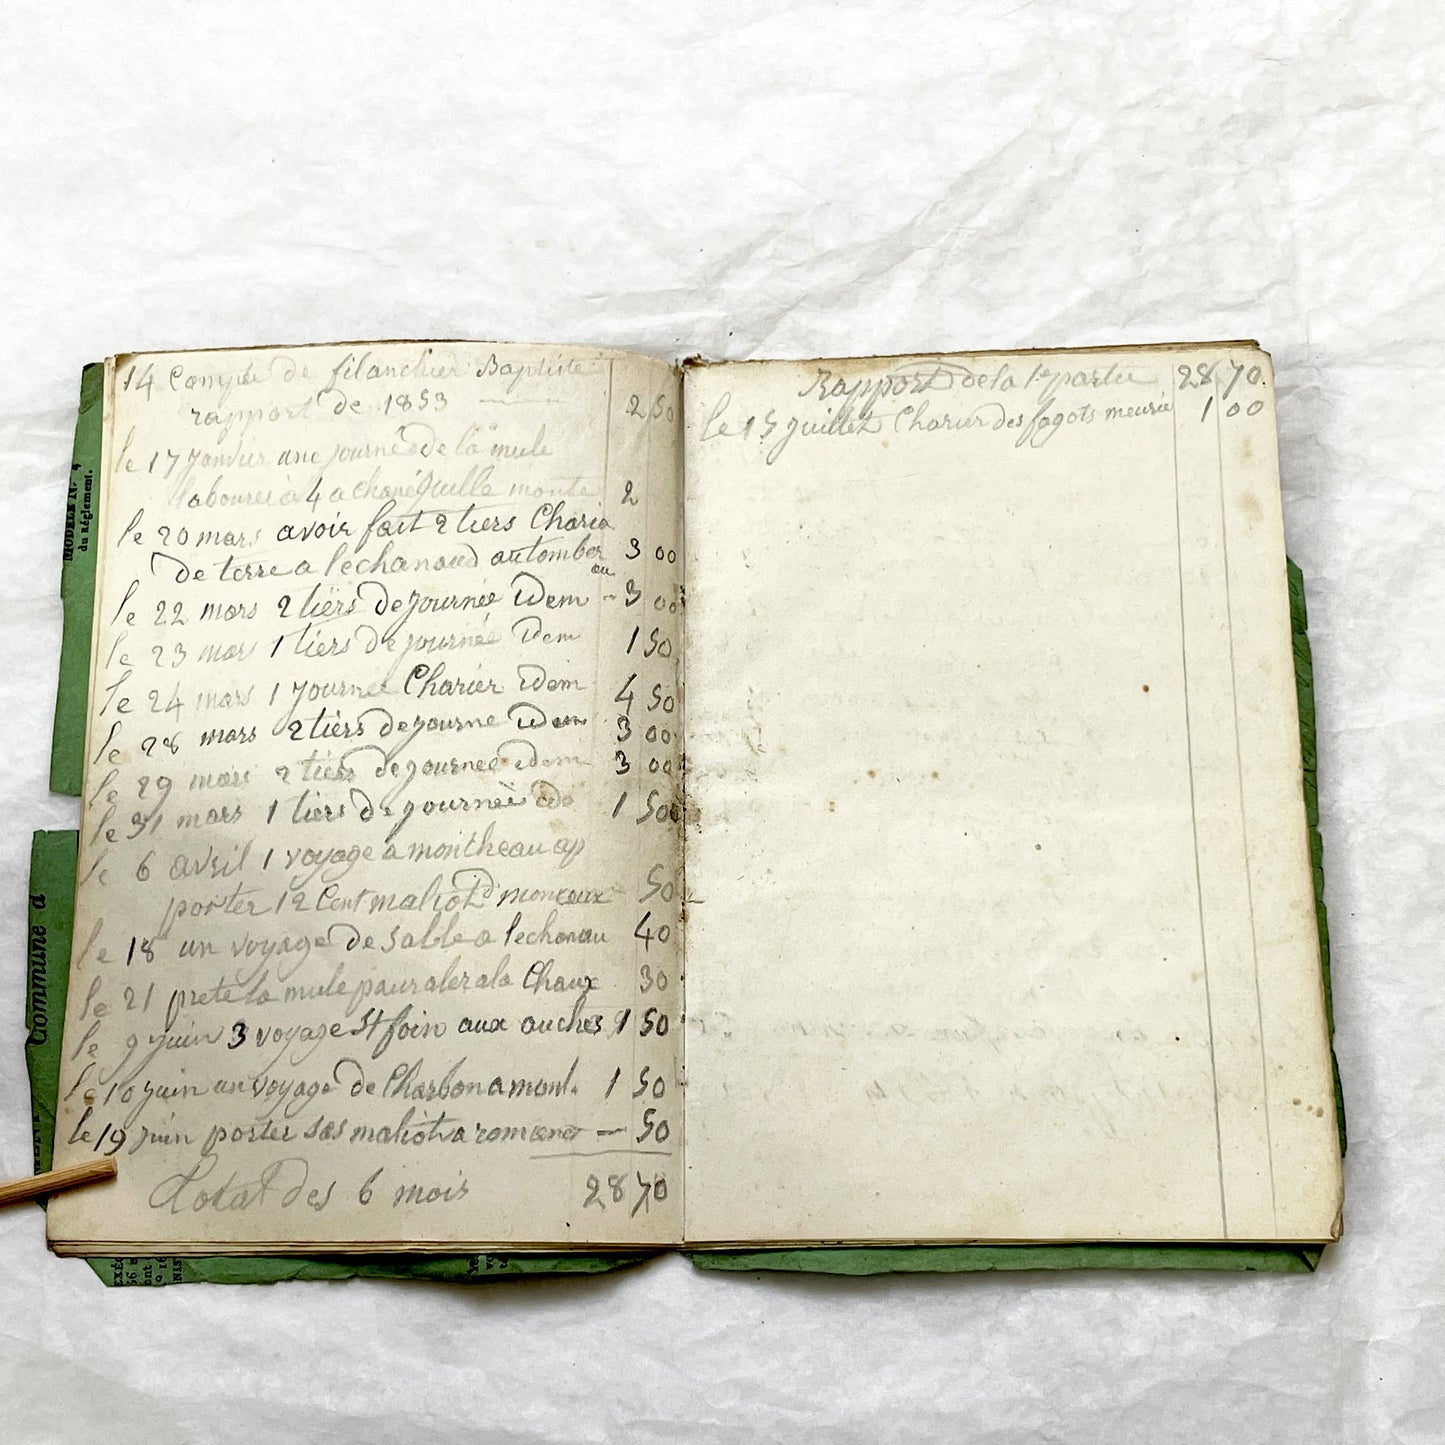 14 Compte de filanchier Baptiste
rapport de 1853 2 50
le 17 janvier une journé de la mule
labourer a 4 a monte 2
le 20 mars avoir fait 2 tiers Charia
de terre a lechanaud 3 00
au
le 22 mars 2 tiers de journée idem - 3 00
le 23 mars 1 tiers de journée idem 1 50
le 24 mars 1 journée Charier idem 4 50
le 28 mars 2 tiers de journe idem 3 00
le 29 mars 2 tiers de journée idem 3 00
le 31 mars 1 tiers de journée ido 1 50
le 6 avril 1 voyage a montheau ap
porter 12 Cent maliot monceaux 50
le 18 un voyage de sable a lechanau 40
le 21 prete la mule pour aler ala Chaux 30
le 9 juin 3 voyage St foin aux ouches 1 50
le 10 juin un voyage de Charbon a mont. 1 50
le 19 juin porter ses maliot a — 50
total des 6 mois 28 70
Rapport de la 1e partie 28 70
le 15 juillet Charier des fagots meurie 1 00
MODÈLE N. 4
du Règlement.
Commune d